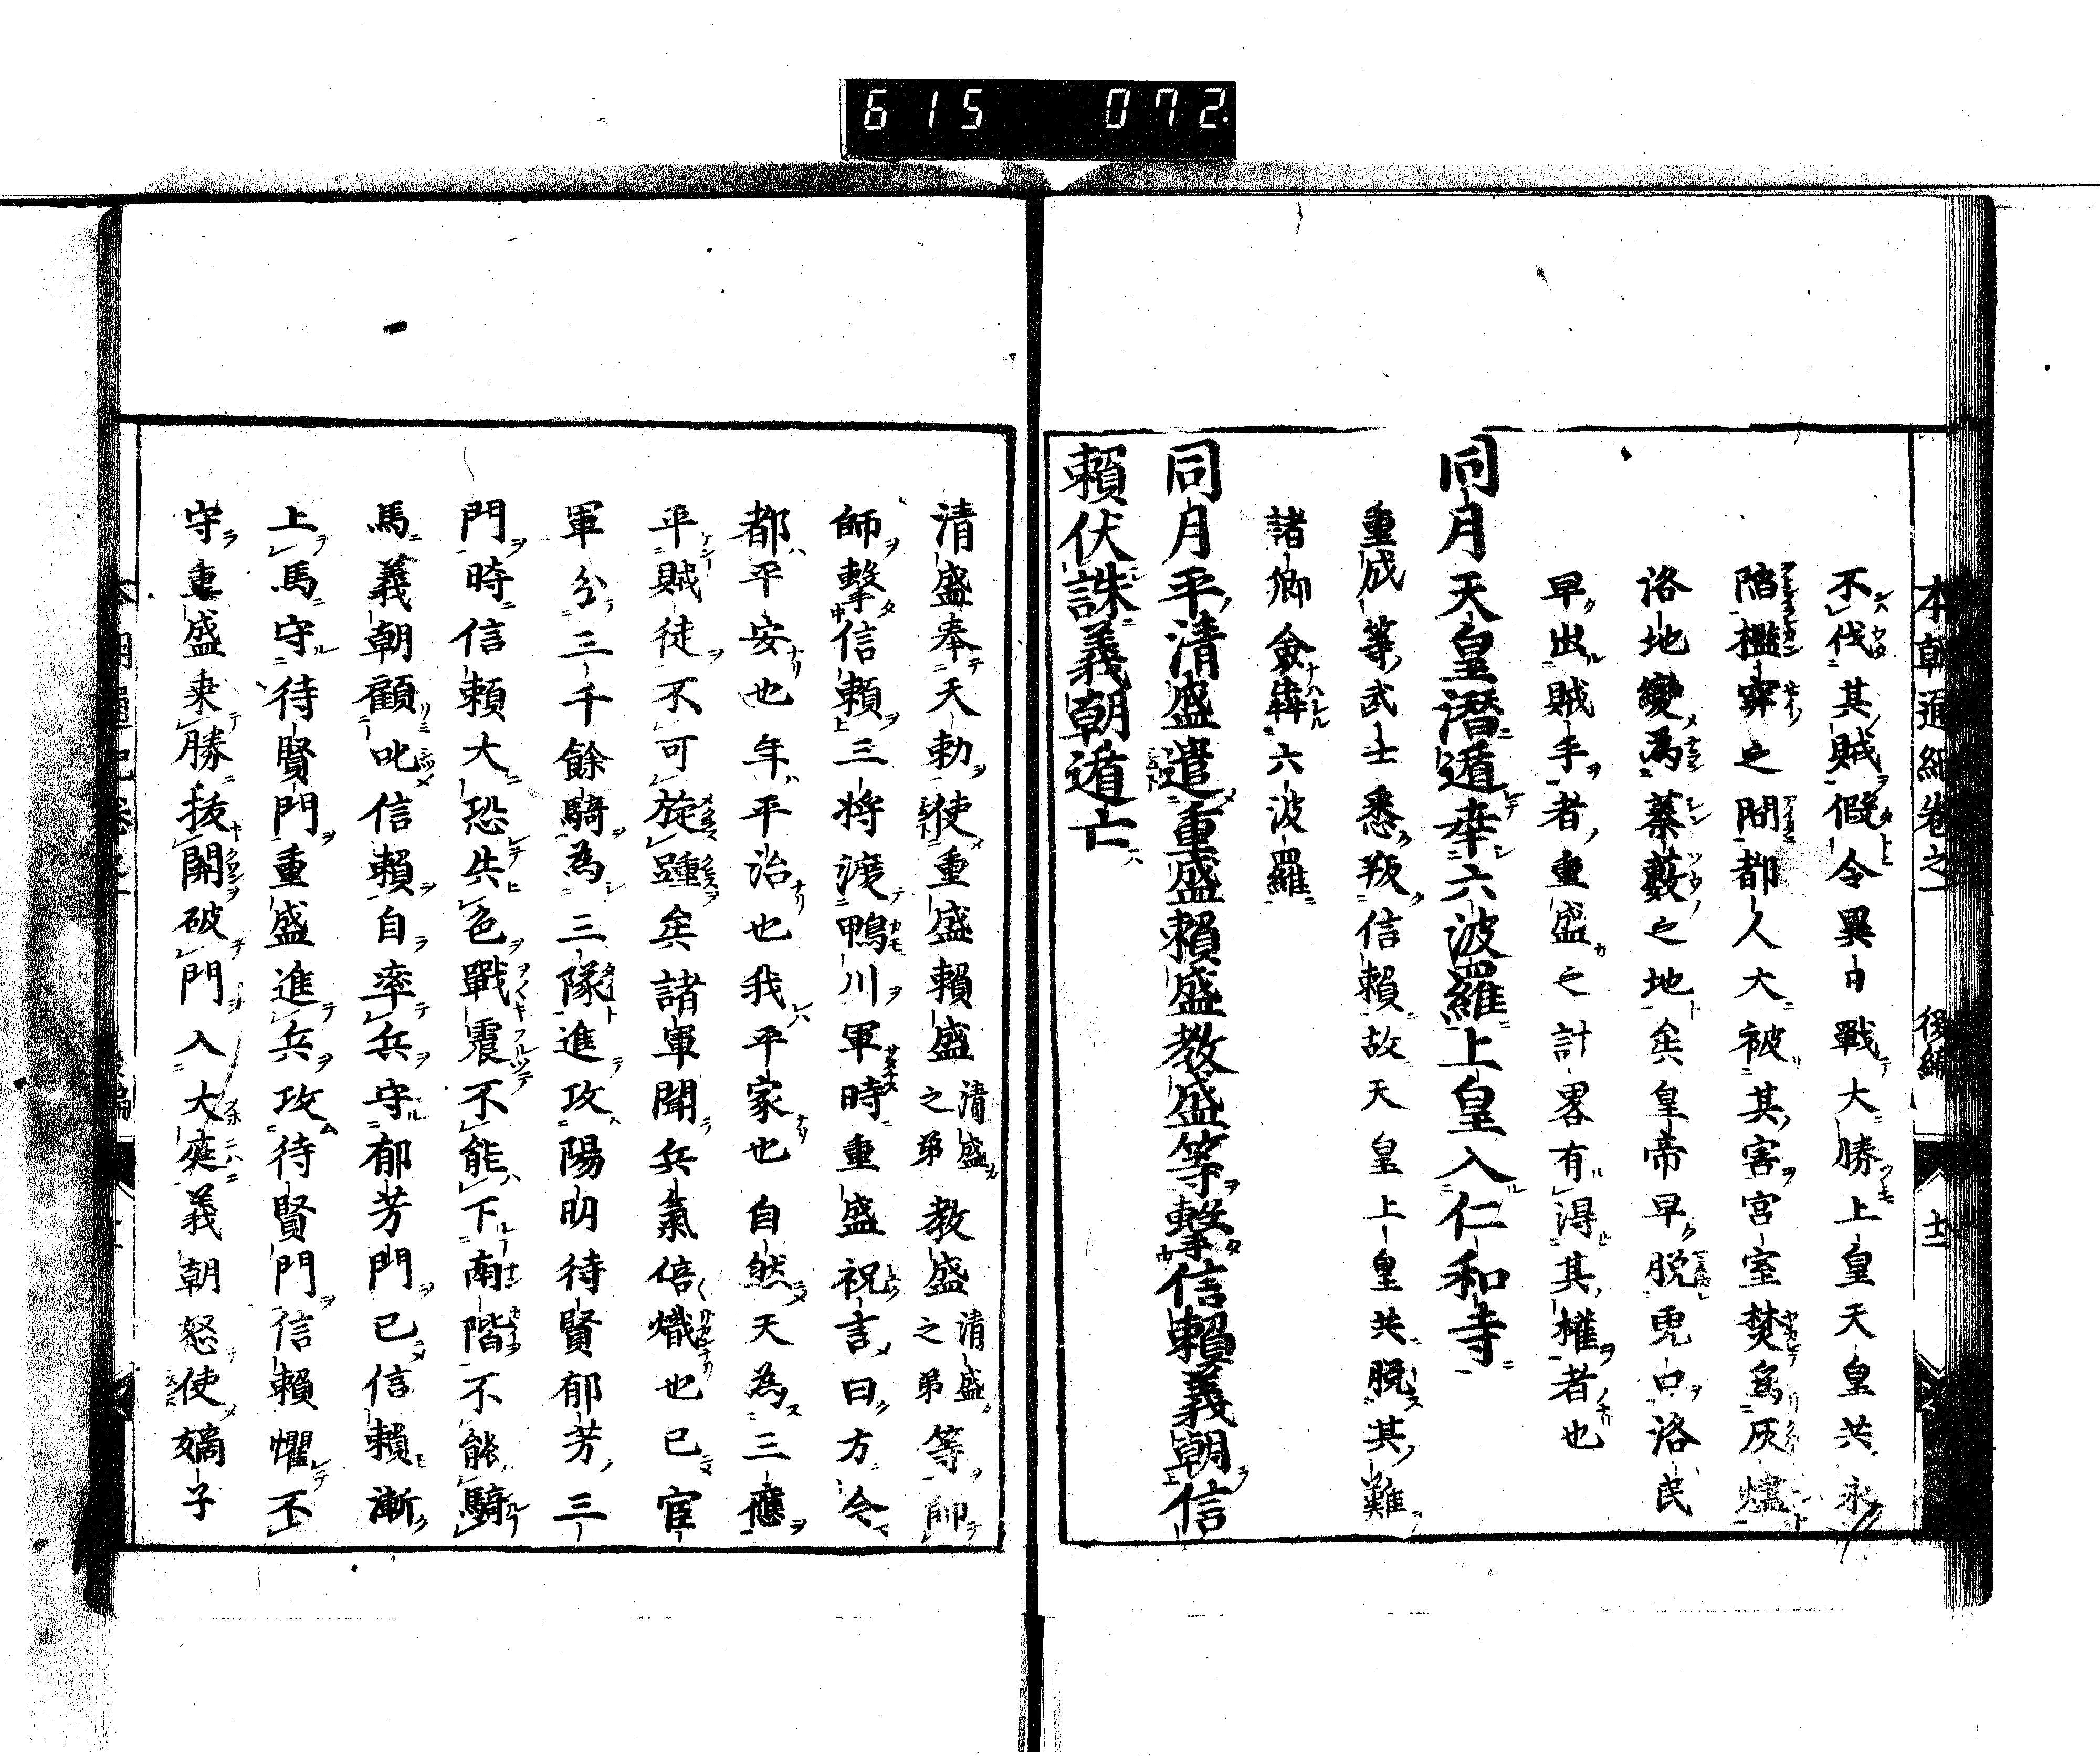 615 072.
本朝通紀卷之一 後編 十二
不伐其賊假令異日戰大勝上皇天皇共永
陷檻穽之間都人大被其害宮室焚為灰燼
洛地變為蓁藪之地矣皇帝早脫虎口洛民
早出賊手者重盛之計畧有得其權者也
同月天皇潛遁幸六波羅上皇入仁和寺
重成等武士悉叛信賴故天皇上皇共脫其難
諸卿僉犇六波羅
同月平清盛遣重盛賴盛教盛等擊信賴義朝信
賴伏誅義朝遁亡
清盛奉天勅使重盛賴盛清盛之弟教盛清盛之弟等帥
師擊信賴三将渡鴨川軍時重盛祝言曰方今
都平安也年平治也我平家也自然天為三應
平賊徒不可旋踵矣諸軍聞兵氣倍熾也已官
軍分三千餘騎為三隊進攻陽明待賢郁芳三
門時信賴大恐失色戰震不能下南階不能騎
馬義朝顧叱信賴自率兵守郁芳門已信賴漸
上馬守待賢門重盛進兵攻待賢門信賴懼不
守重盛乘勝拔關破門入大庭義朝怒使嫡子